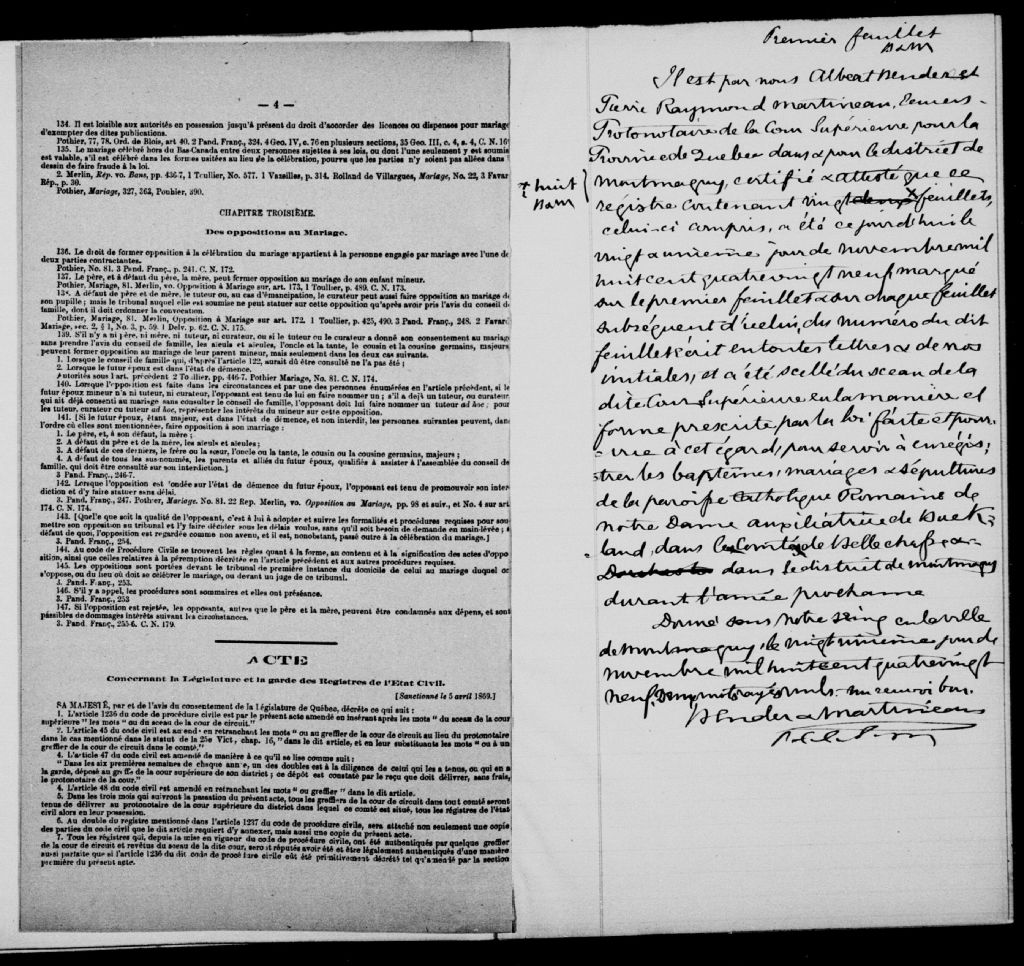 — 4 —
134. Il est loisible aux autorités en possession jusqu'à présent du droit d'accorder des licences ou dispenses pour mariage
d'exempter des dites publications.
Pothier, 77, 78. Ord. de Blois, art 40. 2 Pand. Franç., 324. 4 Geo. IV, c. 76 en plusieurs sections, 35 Geo. III, c. 4, s. 4, C. N. 16
135. Le mariage célébré hors du Bas-Canada entre deux personnes sujettes à ses lois, ou dont l'une seulement y est soumis
est valable, s'il est célébré dans les formes usitées au lieu de la célébration, pourvu que les parties n'y soient pas allées dans
dessin de faire fraude à la loi.
2. Merlin, Rép. vo. Bans, pp. 436-7, 1 Toullier, No. 577. 1 Vazeilles, p. 314. Rolland de Villargues, Mariage, No. 22, 3 Favar
Rép., p. 30.
Pothier, Mariage, 327, 263, Pouhier, 390.
CHAPITRE TROISIÈME.
Des oppositions au Mariage.
136. Le droit de former opposition à la célébration du mariage appartient à la personne engagée par mariage avec l'une de
deux parties contractantes.
Pothier, No. 81. 3 Pand. Franç., p. 241. C. N. 172.
137. Le père, et à défaut du père, la mère, peut former opposition au mariage de son enfant mineur.
Pothier, Mariage, 81. Merlin, vo. Opposition à Mariage sur, art. 173, 1 Toullier, p. 489. C. N. 173.
138. A défaut de père et de mère, le tuteur ou, au cas d'émancipation, le curateur peut aussi faire opposition au mariage de
son pupille; mais le tribunal auquel elle est soumise ne peut statuer sur cette opposition qu'après avoir pris l'avis du conseil de
famille, dont il doit ordonner la convocation.
Pothier, Mariage, 81. Merlin, Opposition à Mariage sur art. 172. 1 Toullier, p. 425, 490. 3 Pand. Franç., 248. 2 Favard
Mariage, sec. 2, § 1, No. 3, p. 59. 1 Delv. p. 62. C. N. 175.
139. S'il n'y a ni père, ni mère, ni tuteur, ni curateur, ou si le tuteur ou le curateur a donné son consentement au mariage
sans prendre l'avis du conseil de famille, les aïeuls et aïeules, l'oncle et la tante, le cousin et la cousine germains, majeurs
peuvent former opposition au mariage de leur parent mineur, mais seulement dans les deux cas suivants.
1. Lorsque le conseil de famille qui, d'après l'article 122, aurait dû être consulté ne l'a pas été;
2. Lorsque le futur époux est dans l'état de démence.
Autorités sous l'art. précédent 2 Toullier, pp. 446-7. Pothier Mariage, No. 81. C. N. 174.
140. Lorsque l'opposition est faite dans les circonstances et par une des personnes énumérées en l'article précédent, si le
futur époux mineur n'a ni tuteur, ni curateur, l'opposant est tenu de lui en faire nommer un; s'il a déjà un tuteur, ou curateur
qui ait déjà consenti au mariage sans consulter le conseil de famille, l'opposant doit lui faire nommer un tuteur ad hoc; pour
les tuteur, curateur ou tuteur ad hoc, représenter les intérêts du mineur sur cette opposition.
141. [Si le futur époux, étant majeur, est dans l'état de démence, et non interdit, les personnes suivantes peuvent, dans
l'ordre où elles sont mentionnées, faire opposition à son mariage:
1. Le père, et, à son défaut, la mère;
2. A défaut du père et de la mère, les aïeuls et aïeules;
3. A défaut de ces derniers, le frère ou la sœur, l'oncle ou la tante, le cousin ou la cousine germains, majeurs;
4. A défaut de tous les sus-nommés, les parents et alliés du futur époux, qualifiés à assister à l'assemblée du conseil de
famille, qui doit être consulté sur son interdiction.]
3 Pand. Franç., 246-7.
142. Lorsque l'opposition est fondée sur l'état de démence du futur époux, l'opposant est tenu de promouvoir son inter
diction et d'y faire statuer sans délai.
3. Pand. Franç., 247. Pothier, Mariage. No. 81. 22 Rep. Merlin, vo. Opposition au Mariage, pp. 98 et suiv., et No. 4 sur art
174. C. N. 174.
143. [Quel'que soit la qualité de l'opposant, c'est à lui à adopter et suivre les formalités et procédures requises pour sou
mettre son opposition au tribunal et l'y faire décider sous les délais voulus, sans qu'il soit besoin de demande en main-levée; à
défaut de quoi, l'opposition est regardée comme non avenu, et il est, nonobstant, passé outre à la célébration du mariage.]
3. Pand. Franç., 254.
144. Au code de Procédure Civile se trouvent les règles quant à la forme, au contenu et à la signification des actes d'oppo
sition, ainsi que celles relatives à la péremption décrétée en l'article précédent et aux autres procédures requises.
145. Les oppositions sont portées devant le tribunal de première instance du domicile de celui au mariage duquel on
s'oppose, ou du lieu où doit se célébrer le mariage, ou devant un juge de ce tribunal.
3. Pand. Franç., 253.
146. S'il y a appel, les procédures sont sommaires et elles ont préséance.
3. Pand. Franç., 253
147. Si l'opposition est rejetée, les opposants, autres que le père et la mère, peuvent être condamnés aux dépens, et sont
passibles de dommages intérêts suivant les circonstances.
3. Pand. Franç., 255-6. C. N. 179.
ACTE
Concernant la Législature et la garde des Registres de l'Etat Civil.
[Sanctionné le 5 avril 1869.]
SA MAJESTÉ, par et de l'avis du consentement de la Législature de Québec, décrète ce qui suit:
1. L'article 1236 du code de procédure civile est par le présent acte amendé en insérant après les mots "du sceau de la cour
supérieure" les mots "ou du sceau de la cour de circuit."
2. L'article 45 du code civil est amendé en retranchant les mots "ou au greffier de la cour de circuit au lieu du protonotaire
dans le cas mentionné dans le statut de la 25e Vict, chap. 16," dans le dit article, et en leur substituant les mots "ou à un
greffier de la cour de circuit dans le comté."
4. L'article 47 du code civil est amendé de manière à ce qu'il se lise comme suit:
"Dans les six premières semaines de chaque année, un des doubles est à la diligence de celui qui les a tenus, ou qui en a
la garde, déposé au greffe de la cour supérieure de son district; ce dépôt est constaté par le reçu que doit délivrer, sans frais,
le protonotaire de la cour."
4. L'article 48 du code civil est amendé en retranchant les mots "ou greffier" dans le dit article.
5. Dans les trois mois qui suivront la passation du présent acte, tous les greffiers de la cour de circuit dans tout comté seront
tenus de délivrer au protonotaire de la cour supérieure du district dans lequel ce comté est situé, tous les régistres de l'état
civil alors en leur possession.
6. Au double du registre mentionné dans l'article 1237 du code de procédure civile, sera attaché non seulement une copie
des parties du code civil que le dit article requiert d'y annexer, mais aussi une copie du présent acte.
7. Tous les régistres qui, depuis la mise en vigueur du code de procédure civile, ont été authentiqués par quelque greffier
de la cour de circuit et revêtus du sceau de la dite cour, seront réputés avoir été et être légalement authentiqués d'une manière
aussi parfaite que si l'article 1236 du dit code de procédure civile eût été primitivement décrété tel qu'amendé par la section
première du présent acte.
Premier feuillet
B&M
Il est par nous Albert Bender et
Pierre Raymond Martineau, Ecuiers
Protonotaire de la Cour Supérieure pour la
Province de Quebec dans & pour le district de
Montmagny, certifié & attesté que ce
+ huit
B&M
régistre contenant vingt deux feuillets,
celui-ci compris, a été ce jourd'hui le
vingt unième jour de novembre mil
huit cent quatre vingt neuf marqué
sur le premier feuillet & sur chaque feuillet
subséquent d'icelui, du numéro du dit
feuillet écrit en toutes lettres & de nos
initiales, et a été scellé du sceau de la
dite Cour Supérieure en la manière et
forme prescrite par la loi faite et pour-
-vue à cet égard, pour servir à enrégis-
trer les baptêmes, mariages & sépultures
de la paroisse Catholique Romaine de
Notre Dame auxiliatrice de Buck-
land, dans le Comté de Bellechasse &
Dorchester dans le district de Montmagny
durant l'année prochaine
Donné sous notre seing en la ville
de Montmagny, le vingt unième jour de
novembre mil huit cent quatre vingt
neuf. Deux mots rayés nuls. un renvoi bon.
Bender & Martineau